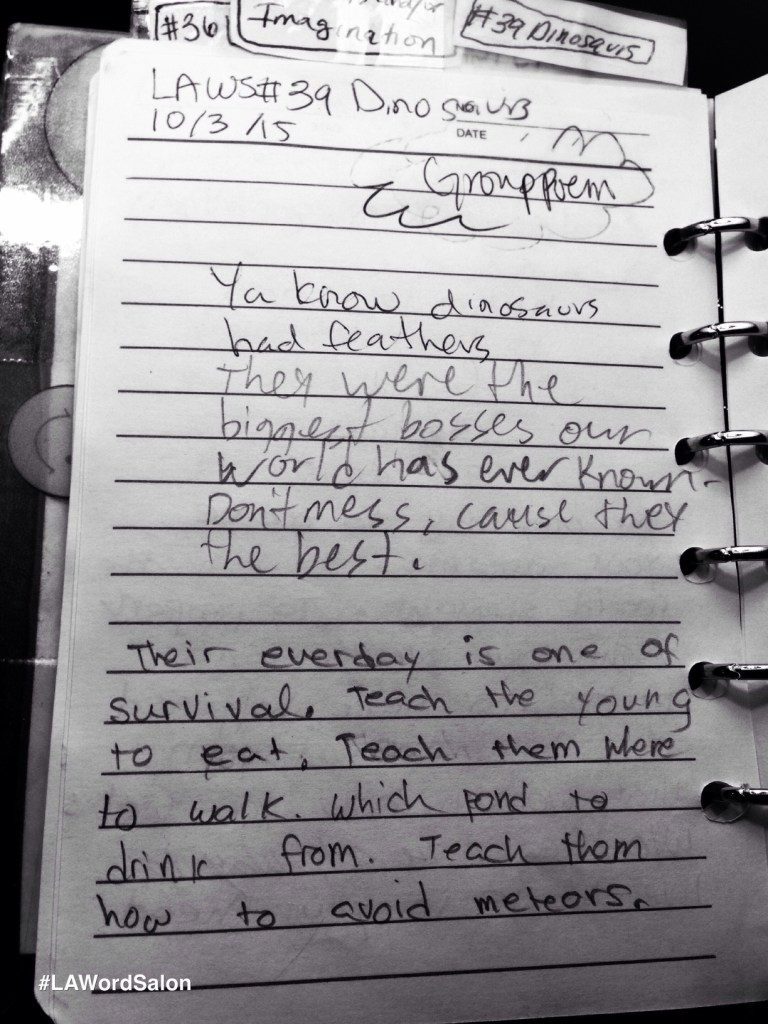 #36
Imagination
#39 Dinosaurs
LAWS#39 Dinosaurs
10/3/15
DATE
Grouppoem
Ya know dinosaurs
had feathers
They were the
biggest bosses our
world has ever known.
Don't mess, cause they
the best.
Their everday is one of
survival. Teach the young
to eat. Teach them where
to walk. which pond to
drink from. Teach them
how to avoid meteors.
#LAWordSalon